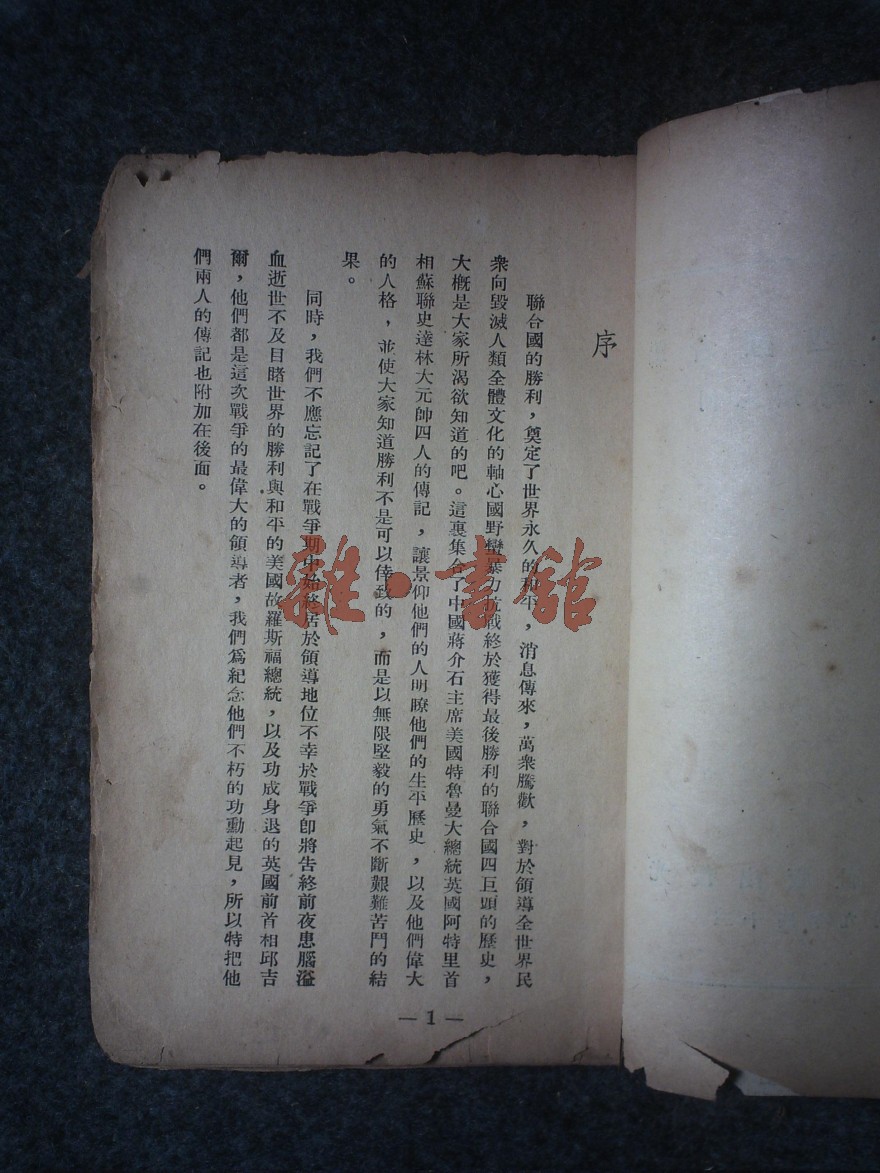 序
聯合國的勝利，奠定了世界永久的和平，消息傳來，萬衆騰歡，對於領導全世界民
衆向毀滅人類全體文化的軸心國野蠻暴力抗戰終於獲得最後勝利的聯合國四巨頭的歷史，
大槪是大家所渴欲知道的吧。這裏集合了中國蔣介石主席美國特魯曼大總統英國阿特里首
相蘇聯史達林大元帥四人的傳記，讓景仰他們的人明瞭他們的生平歷史，以及他們偉大
的人格，並使大家知道勝利不是可以倖致的，而是以無限堅毅的勇氣不斷艱難苦鬥的結
果。
同時，我們不應忘記了在戰爭期中始終居於領導地位不幸於戰爭卽將吿終前夜患腦溢
血逝世不及目睹世界的勝利與和平的美國故羅斯福總統，以及功成身退的英國前首相邱吉
爾，他們都是這次戰爭的最偉大的領導者，我們爲紀念他們不朽的功勳起見，所以特把他
們兩人的傳記也附加在後面。
— 1 —
雜·書館